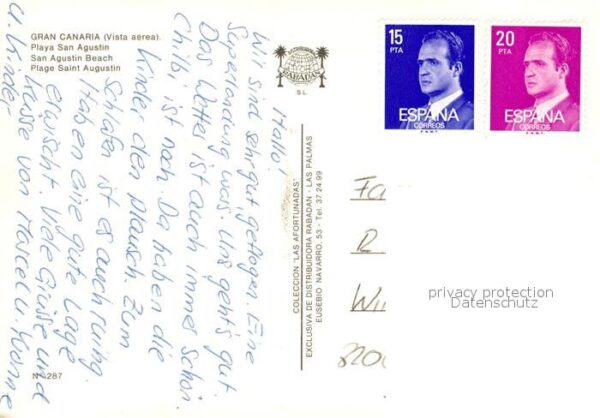 GRAN CANARIA (Vista aérea).
Playa San Agustin
San Agustin Beach
Plage Saint Augustin
RABADAN
S.L.
Hallo!
Wir sind sehr gut geflogen. Eine
Superlandung war's. Uns geht's gut.
Das Wetter ist auch immer schön.
Chilbi ist noch. Da haben die
Kinder den Plausch. Zum
Schlafen ist es auch ruhig.
Haben eine gute Lage
erwischt. Viele Grüsse und
Küsse von Marcel u. Yvonne
u. Kinder
Nº 287
COLECCION "LAS AFORTUNADAS"
EXCLUSIVA DE DISTRIBUIDORA RABADAN - LAS PALMAS
EUSEBIO NAVARRO, 53 - Tel. 37 24 99
15
PTA
ESPAÑA
CORREOS
20
PTA
ESPAÑA
CORREOS
Fa
R
Wi
820
privacy protection
Datenschutz